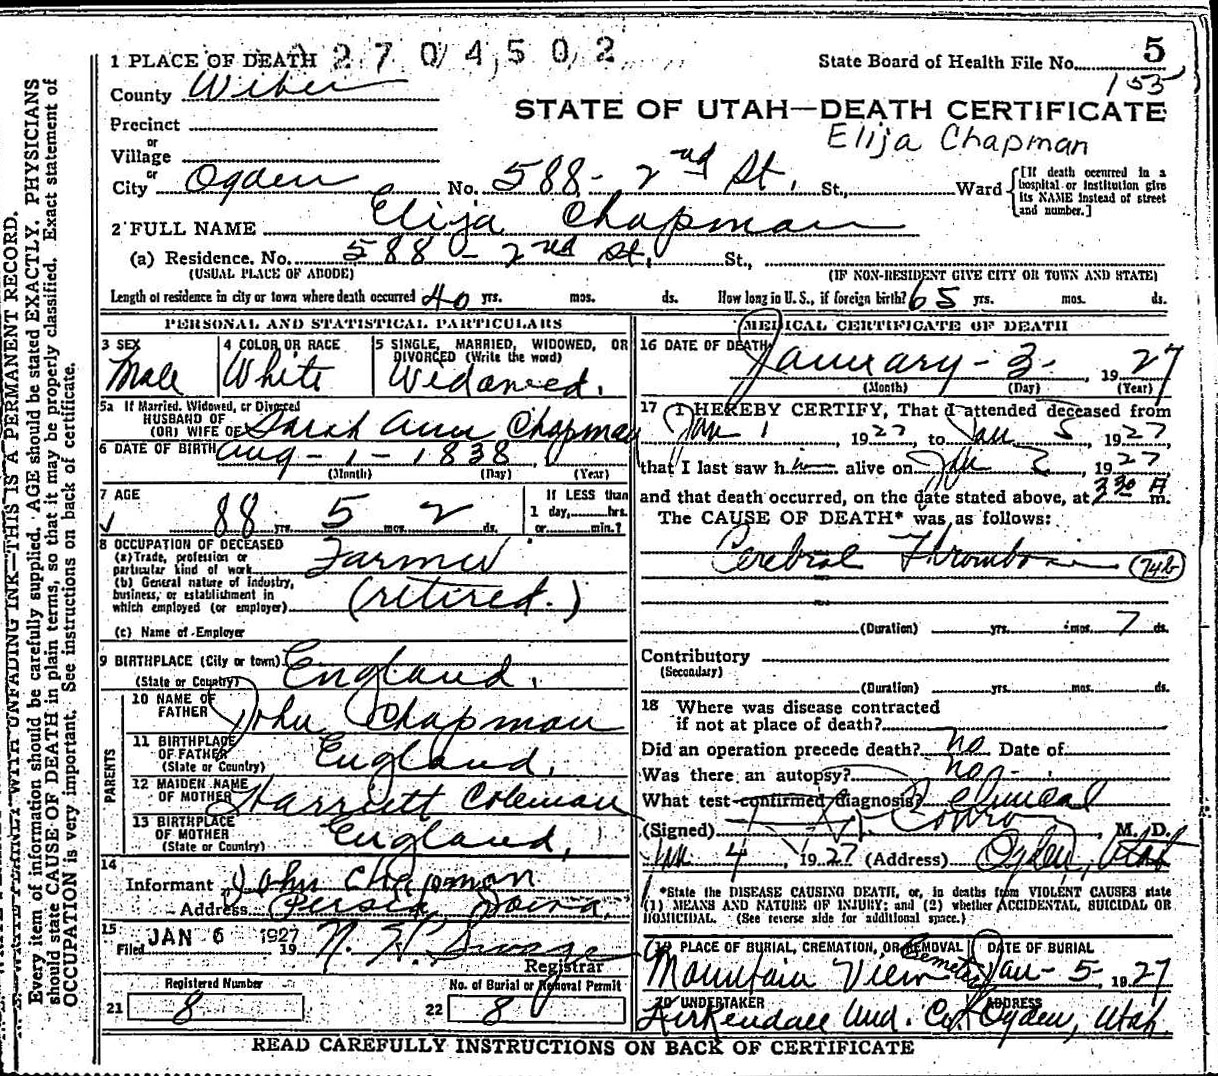 1 PLACE OF DEATH 2704502
State Board of Health File No. 5
153
County Weber
STATE OF UTAH—DEATH CERTIFICATE
Precinct
Elija Chapman
or
Village
or
City Ogden No. 588- 2nd St. St., Ward
[If death occurred in a hospital or institution give its NAME instead of street and number.]
2 FULL NAME Elija Chapman
(a) Residence. No. 588 - 2nd St. St.,
(USUAL PLACE OF ABODE) (IF NON-RESIDENT GIVE CITY OR TOWN AND STATE)
Length of residence in city or town where death occurred 40 yrs. mos. ds. How long in U. S., if foreign birth? 65 yrs. mos. ds.
PERSONAL AND STATISTICAL PARTICULARS
3 SEX 4 COLOR OR RACE 5 SINGLE, MARRIED, WIDOWED, OR
DIVORCED (Write the word)
Male White Widowed.
5a If Married, Widowed, or Divorced
HUSBAND OF
(OR) WIFE OF Sarah Ann Chapman
6 DATE OF BIRTH Aug - 1 - 1838
(Month) (Day) (Year)
7 AGE If LESS than
88 yrs. 5 mos. 2 ds. 1 day, hrs.
or min.?
8 OCCUPATION OF DECEASED
(a) Trade, profession or
particular kind of work Farmer
(b) General nature of industry,
business, or establishment in
which employed (or employer) (retired.)
(c) Name of Employer
9 BIRTHPLACE (City or town)
(State or Country) England.
PARENTS
10 NAME OF
FATHER John Chapman
11 BIRTHPLACE
OF FATHER
(State or Country) England.
12 MAIDEN NAME
OF MOTHER Harriett Coleman
13 BIRTHPLACE
OF MOTHER
(State or Country) England.
14
Informant John Chapman
Address Persia, Iowa.
15
Filed JAN 6 1927 19
Registrar
Registered Number No. of Burial or Removal Permit
21 8 22 8
MEDICAL CERTIFICATE OF DEATH
16 DATE OF DEATH January - 3 - , 1927
(Month) (Day) (Year)
17 I HEREBY CERTIFY, That I attended deceased from
Jan 1 , 1927, to Jan 3, 1927
that I last saw him alive on Jan 2, 1927
and that death occurred, on the date stated above, at 3 30 A m.
The CAUSE OF DEATH* was as follows:
Cerebral Thrombosis 74b
(Duration) yrs. mos. 7 ds.
Contributory
(Secondary)
(Duration) yrs. mos. ds.
18 Where was disease contracted
if not at place of death?
Did an operation precede death? no Date of
Was there an autopsy? no -
What test confirmed diagnosis? clinical
(Signed) Conroy, M. D.
Jan 4, 1927 (Address) Ogden, Utah
*State the DISEASE CAUSING DEATH, or, in deaths from VIOLENT CAUSES state
(1) MEANS AND NATURE OF INJURY; and (2) whether ACCIDENTAL, SUICIDAL OR
HOMICIDAL. (See reverse side for additional space.)
19 PLACE OF BURIAL, CREMATION, OR REMOVAL DATE OF BURIAL
Mountain View Cemetery Jan - 5 - 1927
20 UNDERTAKER ADDRESS
Kirkendall Und. Co. Ogden, Utah.
READ CAREFULLY INSTRUCTIONS ON BACK OF CERTIFICATE
WITH UNFADING INK—THIS IS A PERMANENT RECORD.
Every item of information should be carefully supplied. AGE should be stated EXACTLY. PHYSICIANS
should state CAUSE OF DEATH in plain terms, so that it may be properly classified. Exact statement of
OCCUPATION is very important. See instructions on back of certificate.